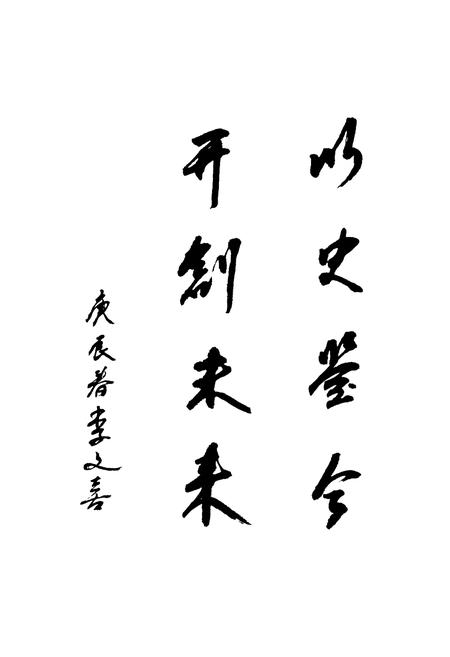 以史鉴今
开創未来
庚辰春李文喜